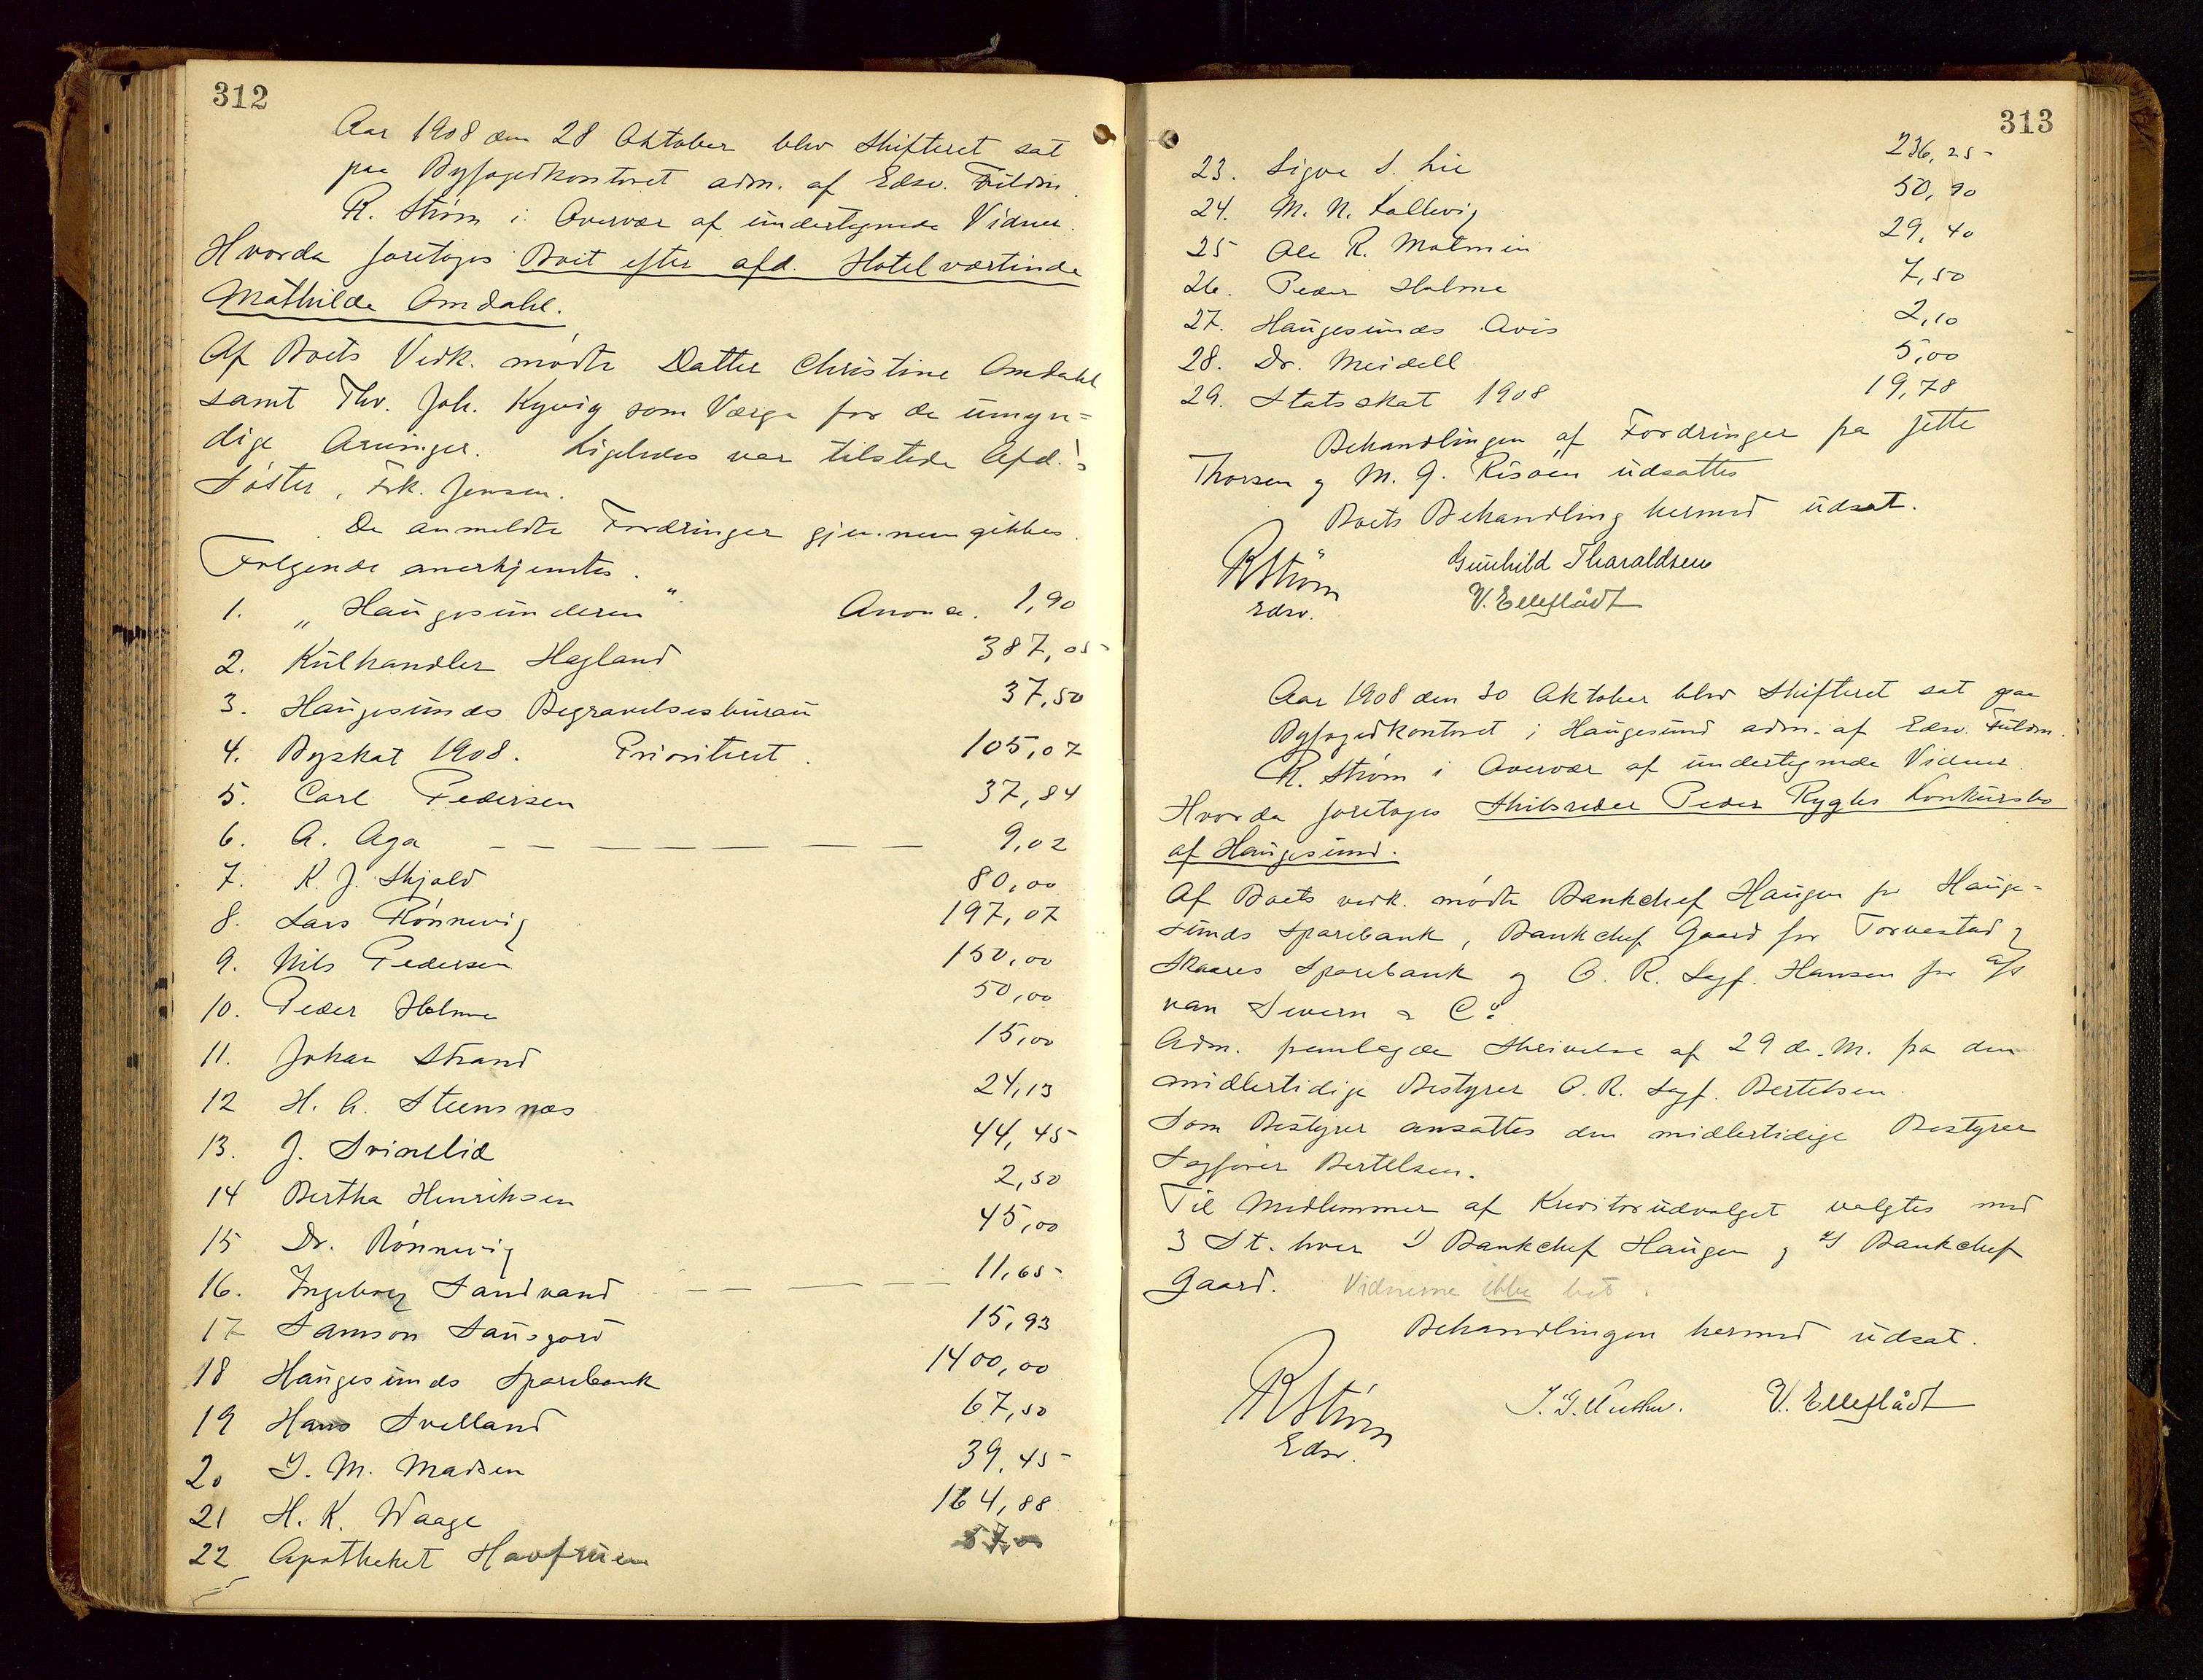 312
Aar 1908 den 28 Oktober blev Skifteret sat
paa Byfogedkontoret adm. af Edsv. Fuldm.
R. Strøm i Overvær af undertegnede Vidner.
Hvorda foretoges Boet efter afd. Hotelværtinde
Mathilde Omdahl.
Af Boets Vedk. mødte Datter Christine Omdahl
samt Thv. Joh. Kyvig som Værge for de umyn=
dige Arvinger. Ligeledes var tilstede Afd.'s
Søster, Frk. Jensen.
De anmeldte Fordringer gjennemgikkes.
Følgende anerkjentes.
1. „Haugesunderen“ Anonse. 1,90
2. Kulhandler Hagland 387,05
3. Haugesunds Begravelsesbureau 37,50
4. Byskat 1908. Prioritet. 105,07
5. Carl Pedersen 37,84
6. A. Aga — — — — — — — 9,02
7. K. J. Skjold 80,00
8. Lars Rønnevig 197,07
9. Nils Pedersen 150,00
10. Peder Holme 50,00
11. Johan Strand 15,00
12 H. A. Steensnæs 24,13
13. J. Svinelid 44,45
14 Bertha Henriksen 2,50
15 Dr. Rønnevig 45,00
16. Ingeborg Sandvand — — — — — 11,65
17 Samson Sausgard 15,93
18 Haugesunds Sparebank 1400,00
19 Hans Svelland 67,50
20 J. M. Madsen 39,45
21 H. K. Waage 164,88
22 Apotheket Havfruen 57,00
313
23. Sigve S. Lie 236,25
24. M. N. Kallevig 50,90
25 Ole R. Matmin 29,40
26. Peder Holme 7,50
27. Haugesunds Avis 2,10
28. Dr. Meidell 5,00
29. Statsskat 1908 19,78
Behandlingen af Fordringer fra Jette
Thorsen og M. G. Risøen udsattes
Boets Behandling hermed udsat.
RStrøm Gunhild Tharaldsen
Edsv. V. Elleflådt
Aar 1908 den 30 Oktober blev Skifteret sat paa
Byfogedkontoret i Haugesund adm. af Edsv. Fuldm.
R. Strøm i Overvær af undertegnede Vidner.
Hvorda foretoges Skibsreder Peder Ryghs Konkursbo
af Haugesund.
Af Boets vedk. mødte Bankchef Haugen for Hauge=
sunds Sparebank, Bankchef Gaard for Torvestad &
Skaares Sparebank og O. R. Sagf. Hansen for A/s
van Severn & Co
Adm. fremlagde Skrivelse af 29 d. M. fra den
midlertidige Bestyrer O. R. Sagf. Bertelsen.
Som Bestyrer ansattes den midlertidige Bestyrer
Sagfører Bertelsen.
Til Medlemmer af Kreditorudvalget valgtes med
3 St. hver 1) Bankchef Haugen og 2) Bankchef
Gaard. Vidnerne ikke bet.
Behandlingen hermed udsat.
RStrøm V. Elleflådt
Edsv.